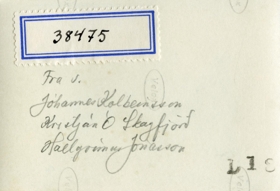 38475
Fra v.
Jóhannes Kolbeinsson
Kristján Ó Skagfjörð
Hallgrímur Jónasson
L 1 9